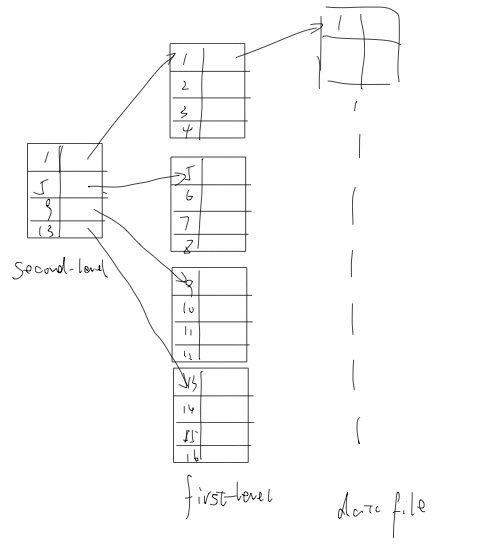 1
5
9
13
second-level
1
2
3
4
5
6
7
8
9
10
11
12
13
14
15
16
first-level
1
data file